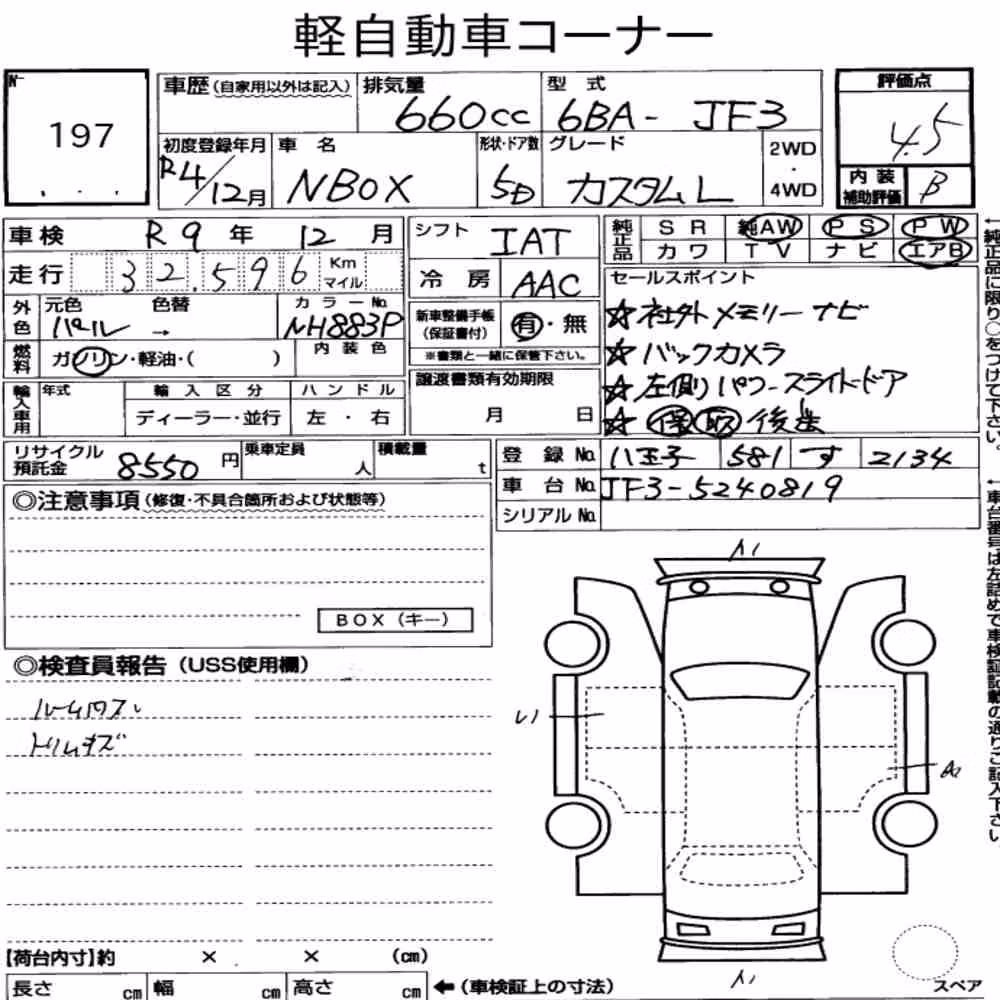 軽自動車コーナー
No.
197
車歴(自家用以外は記入)
排気量
660cc
型式
6BA- JF3
評価点
4.5
初度登録年月
R4/12月
車名
NBOX
形状・ドア数
5D
グレード
カスタムL
2WD
・
4WD
内装
補助評価
B
車検 R9年 12月
シフト
IAT
純正品
SR 純AW PS PW
カワ TV ナビ エアB
走行 32,596 Km
マイル
冷房
AAC
セールスポイント
☆社外メモリーナビ
☆バックカメラ
☆左側パワースライドドア
☆保取後送
外色
元色 色替
パール →
カラーNo.
NH883P
新車整備手帳
(保証書付)
有・無
※書類と一緒に保管下さい。
燃料
ガソリン・軽油・( )
内装色
譲渡書類有効期限
月 日
輸入車用
年式
輸入区分
ディーラー・並行
ハンドル
左・右
リサイクル
預託金
8550円
乗車定員
人
積載量
t
登録No.
八王子 581 す 2134
車台No.
JF3-5240819
シリアルNo.
◎注意事項(修復・不具合箇所および状態等)
BOX(キー)
◎検査員報告(USS使用欄)
ルーム内スレ
トリムキズ
【荷台内寸】約 × × (cm)
長さ cm 幅 cm 高さ cm ←(車検証上の寸法)
スペア
←純正品に限り○をつけて下さい。
←車台番号は左詰めで車検証記載の通りご記入下さい。
A2